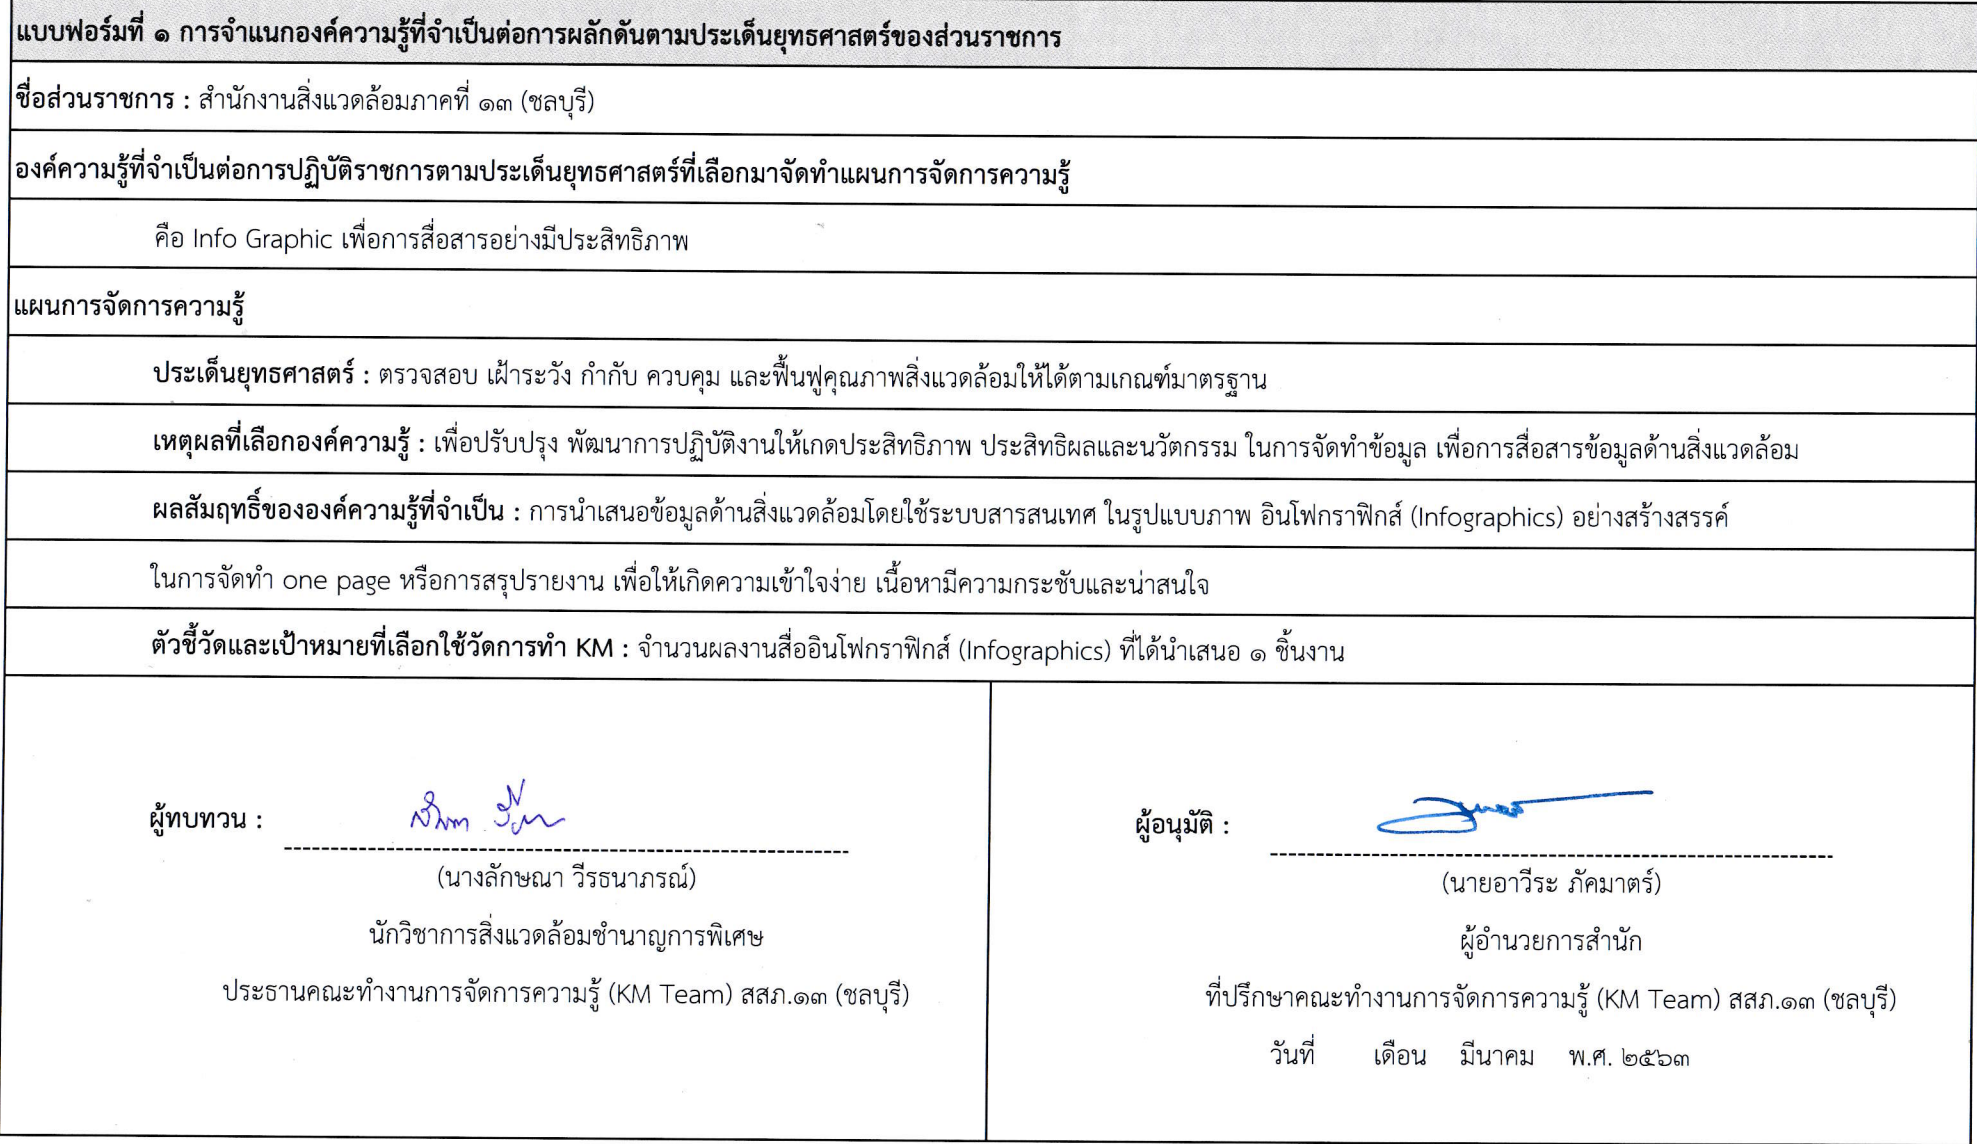 แบบฟอร์มที่ ๑ การจำแนกองค์ความรู้ที่จำเป็นต่อการผลักดันตามประเด็นยุทธศาสตร์ของส่วนราชการ
ชื่อส่วนราชการ : สำนักงานสิ่งแวดล้อมภาคที่ ๑๓ (ชลบุรี)
องค์ความรู้ที่จำเป็นต่อการปฏิบัติราชการตามประเด็นยุทธศาสตร์ที่เลือกมาจัดทำแผนการจัดการความรู้
คือ Info Graphic เพื่อการสื่อสารอย่างมีประสิทธิภาพ
แผนการจัดการความรู้
ประเด็นยุทธศาสตร์ : ตรวจสอบ เฝ้าระวัง กำกับ ควบคุม และฟื้นฟูคุณภาพสิ่งแวดล้อมให้ได้ตามเกณฑ์มาตรฐาน
เหตุผลที่เลือกองค์ความรู้ : เพื่อปรับปรุง พัฒนาการปฏิบัติงานให้เกดประสิทธิภาพ ประสิทธิผลและนวัตกรรม ในการจัดทำข้อมูล เพื่อการสื่อสารข้อมูลด้านสิ่งแวดล้อม
ผลสัมฤทธิ์ขององค์ความรู้ที่จำเป็น : การนำเสนอข้อมูลด้านสิ่งแวดล้อมโดยใช้ระบบสารสนเทศ ในรูปแบบภาพ อินโฟกราฟิกส์ (Infographics) อย่างสร้างสรรค์
ในการจัดทำ one page หรือการสรุปรายงาน เพื่อให้เกิดความเข้าใจง่าย เนื้อหามีความกระชับและน่าสนใจ
ตัวชี้วัดและเป้าหมายที่เลือกใช้วัดการทำ KM : จำนวนผลงานสื่ออินโฟกราฟิกส์ (Infographics) ที่ได้นำเสนอ ๑ ชิ้นงาน
ผู้ทบทวน :
(นางลักษณา วีรธนาภรณ์)
นักวิชาการสิ่งแวดล้อมชำนาญการพิเศษ
ประธานคณะทำงานการจัดการความรู้ (KM Team) สสภ.๑๓ (ชลบุรี)
ผู้อนุมัติ :
(นายอาวีระ ภัคมาตร์)
ผู้อำนวยการสำนัก
ที่ปรึกษาคณะทำงานการจัดการความรู้ (KM Team) สสภ.๑๓ (ชลบุรี)
วันที่ เดือน มีนาคม พ.ศ. ๒๕๖๓